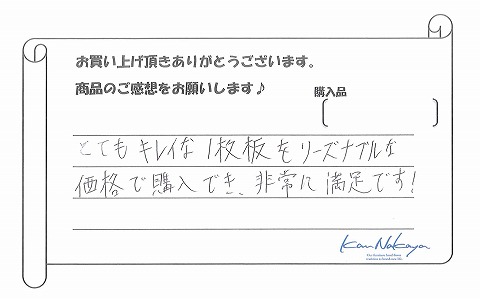 お買い上げ頂きありがとうございます。
商品のご感想をお願いします♪
購入品
とても キレイな 1枚板を リーズナブルな
価格で購入でき、非常に満足です!
Kan Nakaya